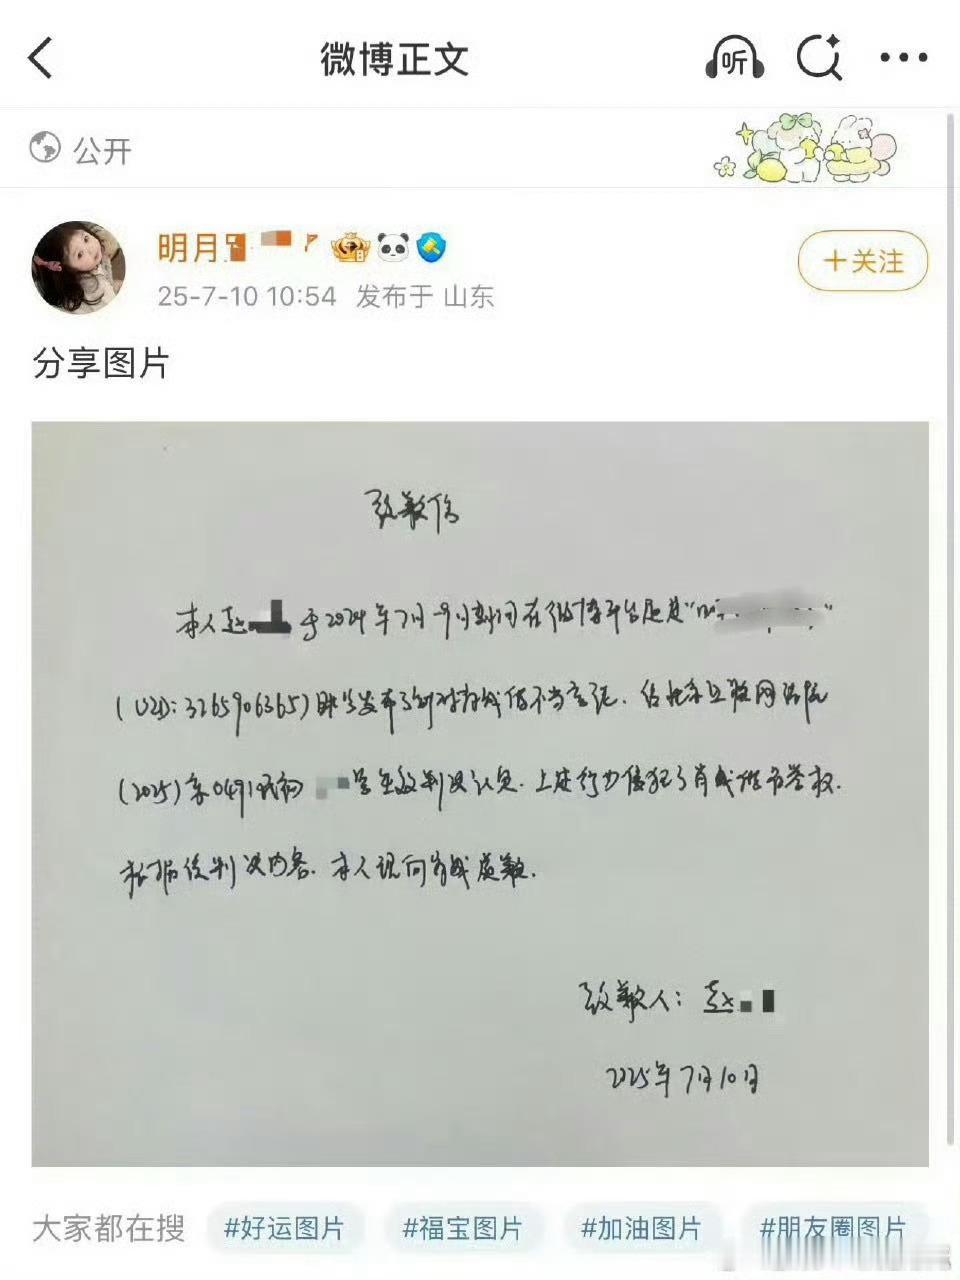 微博正文
听
公开
明月
25-7-10 10:54 发布于 山东
+关注
分享图片
致歉信
本人赵 于2024年7月-9月期间在微博平台通过"
(UID:3265906365)账号发布了针对肖战的不当言论.经北京互联网法院
(2025)京0491民初 号生效判决认定.上述行为侵犯了肖战the名誉权.
根据该判决内容.本人现向肖战道歉.
致歉人:赵
2025年7月10日
大家都在搜 #好运图片 #福宝图片 #加油图片 #朋友圈图片